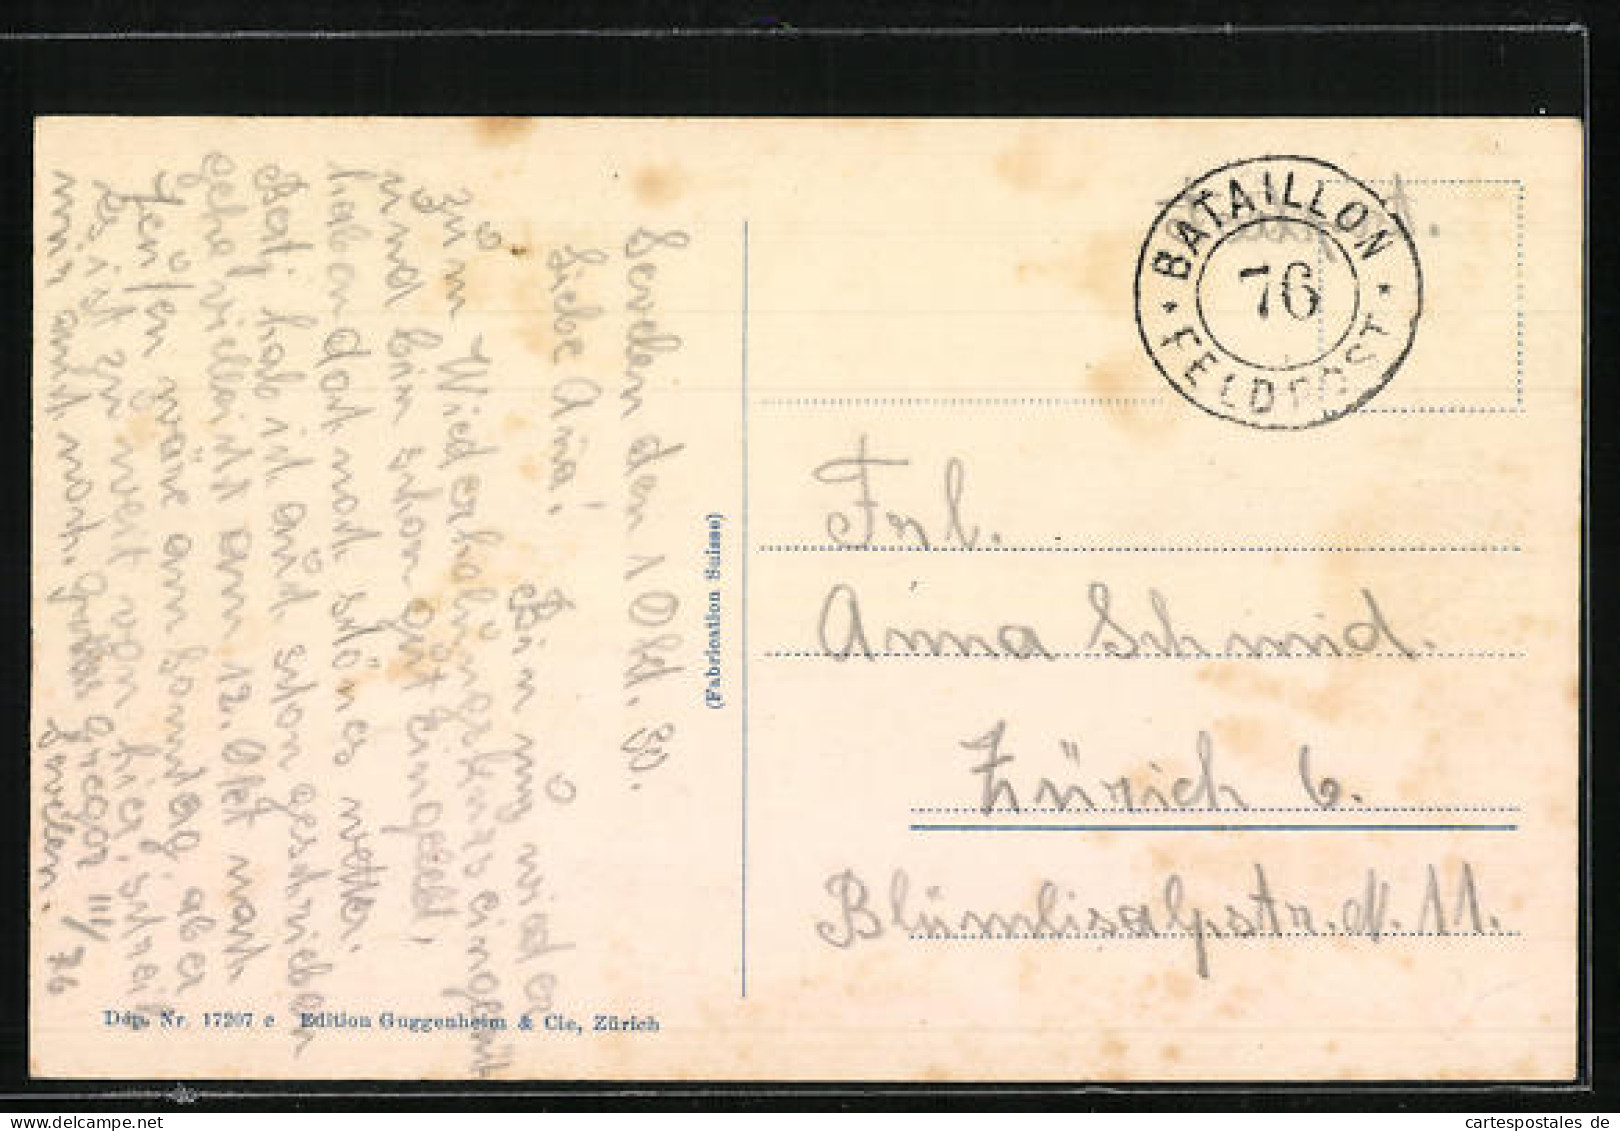 Sevelen den 1 Okt. 30.
Liebe Anna.
Bin nun wieder
zum Wiederholungskurs eingerückt
und bin schon gut
haben dort noch schönes wetter.
hab ich auch schon geschrieben
gehe vielleicht am 12. Okt nach
wäre am Sonntag aber
Es ist zu weit von hier. schreib
nur auch noch. Gruss Gregor III/76
Sevelen.
BATAILLON
76
FELDPOST
Frl.
Anna Schmid.
Zürich 6.
Blümlisalpstr. N. 11.
(Fabrication Suisse)
Dép. Nr. 17207 e Edition Guggenheim & Cie, Zürich
cartespostales de